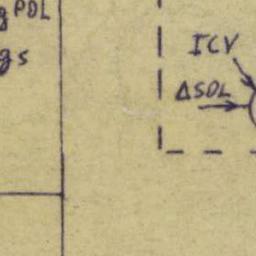 g PDL
gs
ICV
ΔSOL